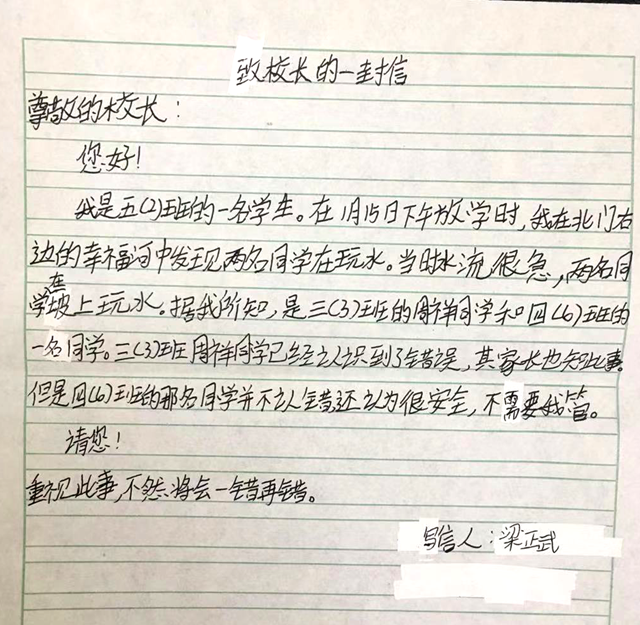 致校长的一封信
尊敬的校长：
您好！
我是五(2)班的一名学生。在1月15日下午放学时，我在北门右
边的幸福河中发现两名同学在玩水。当时水流很急，两名同
学在坡上玩水。据我所知，是三(3)班的周祥同学和四(6)班的
一名同学。三(3)班周祥同学已经认识到了错误，其家长也知此事。
但是四(6)班的那名同学并不认错还认为很安全，不需要我管。
请您！
重视此事，不然将会一错再错。
写信人：梁正武